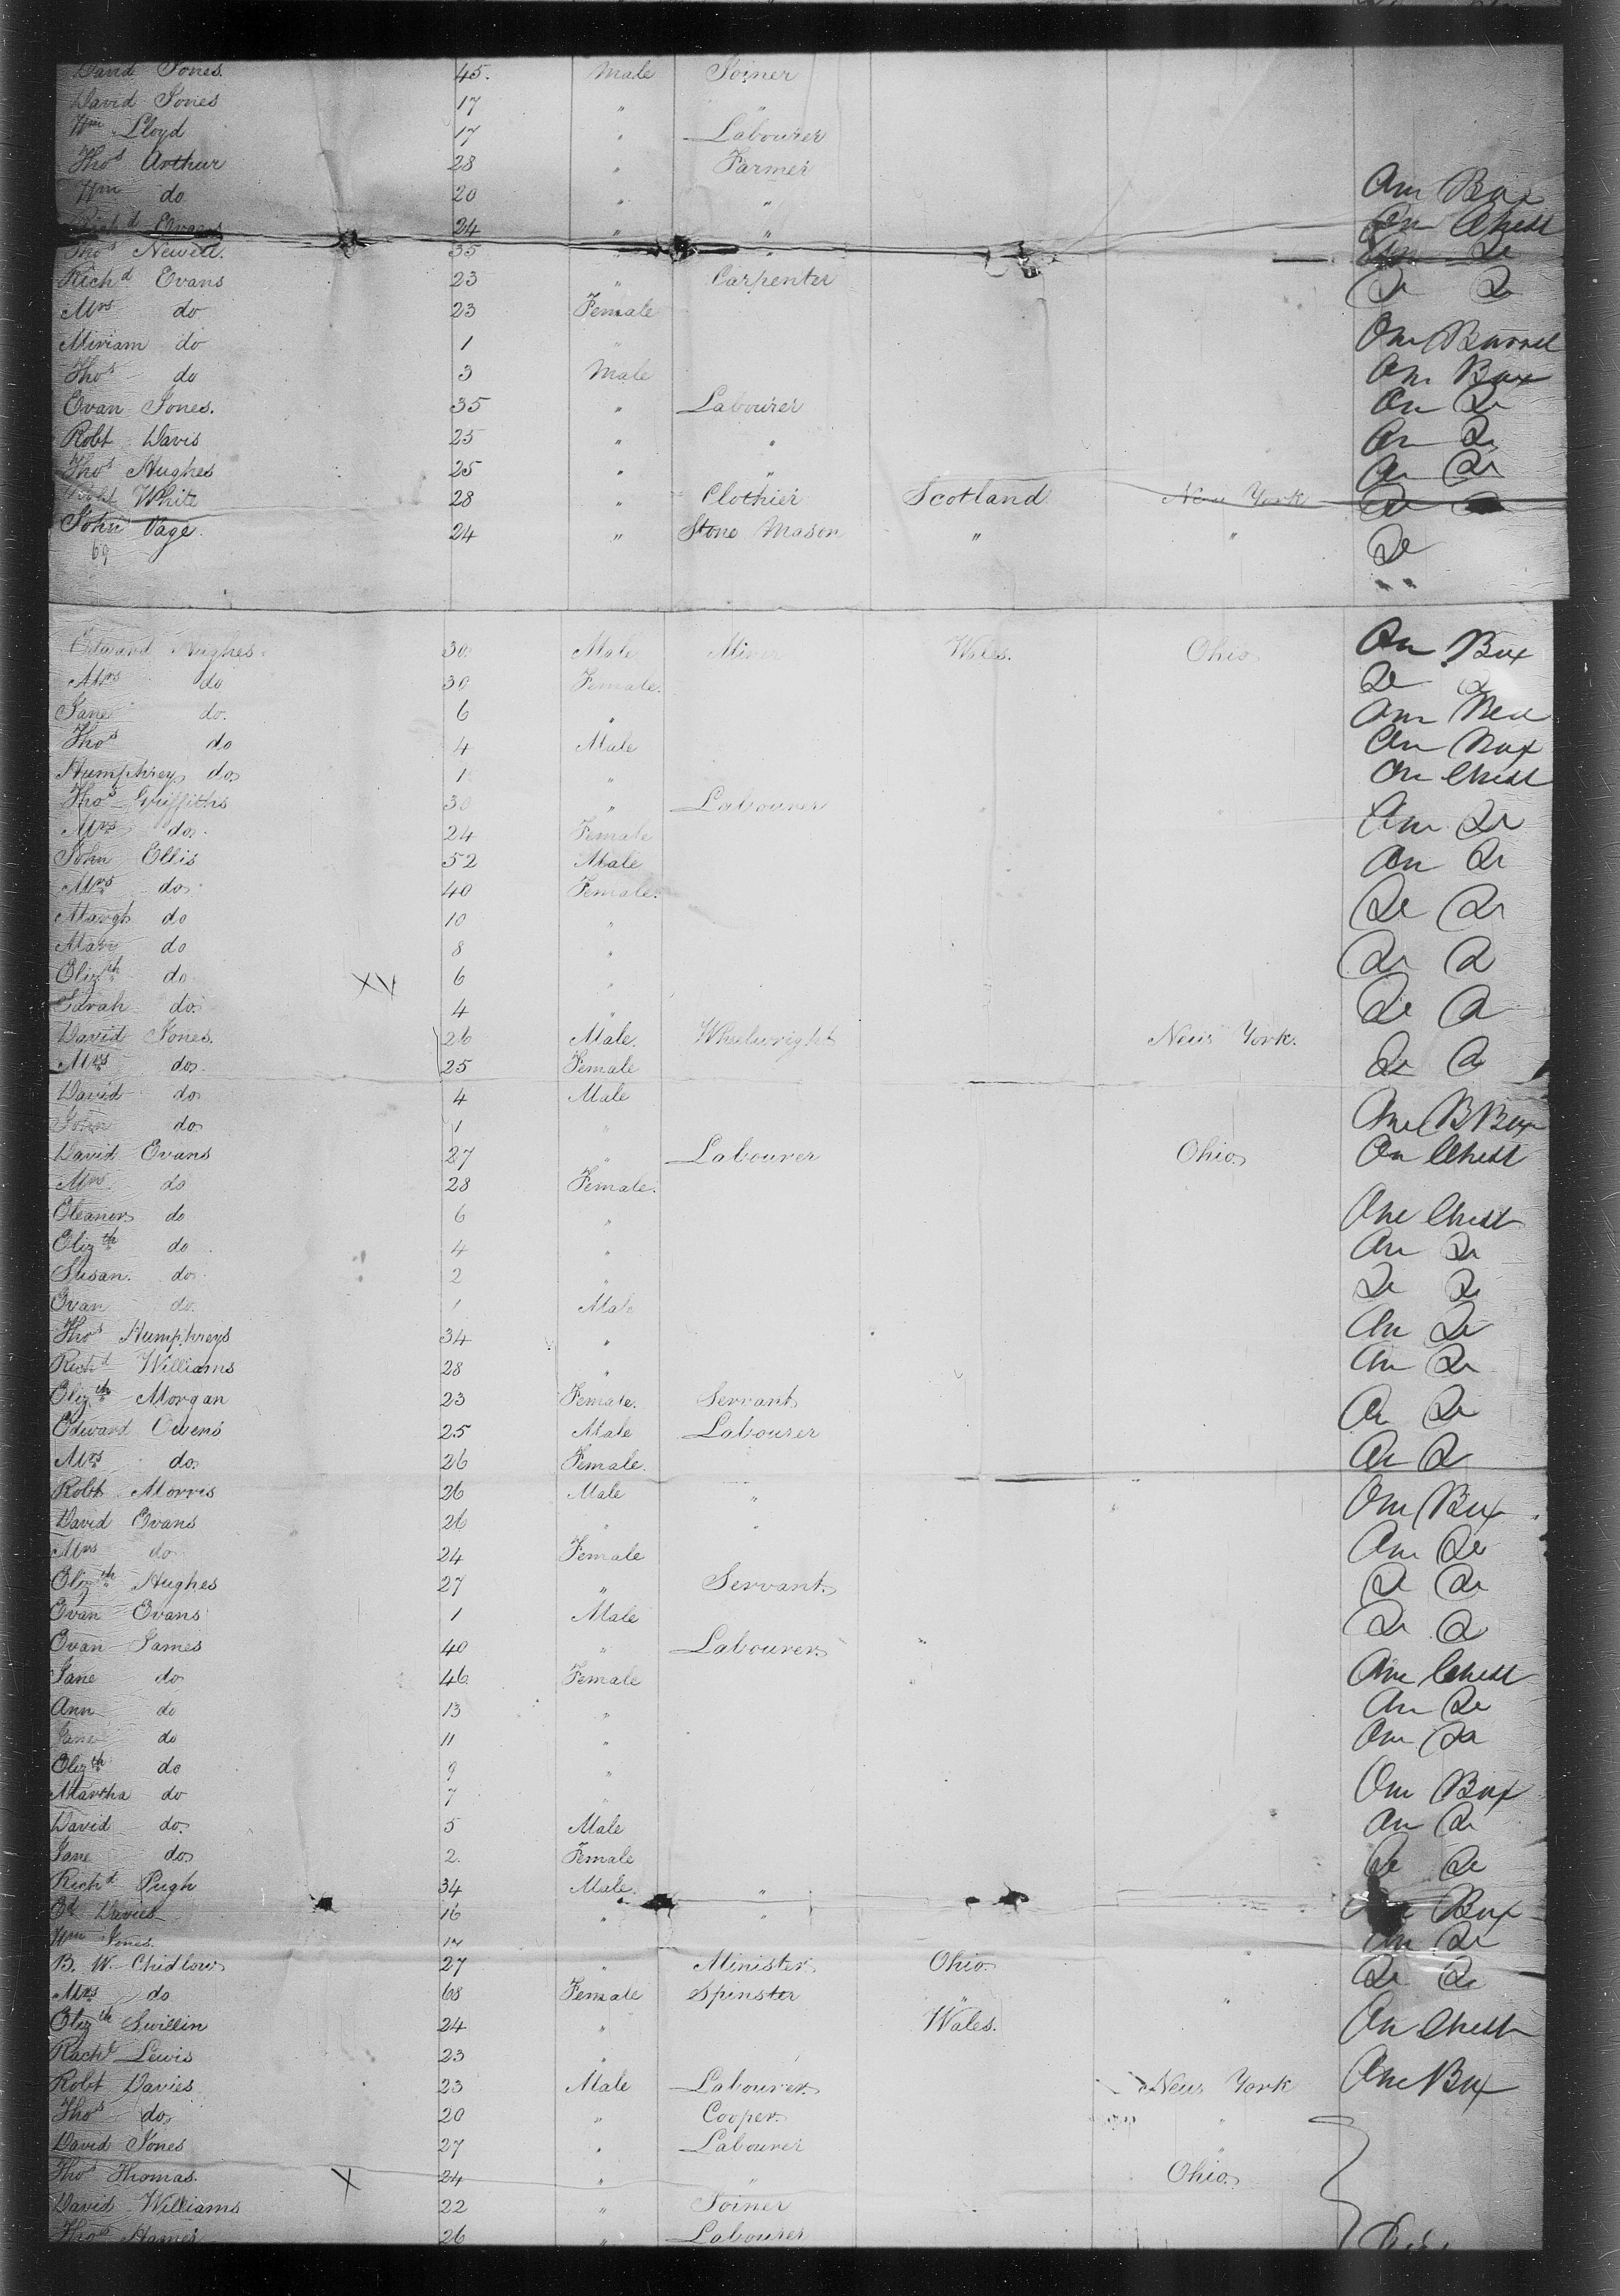 David Jones. 45. Male Joiner
David Jones 17 " "
Wm Lloyd 17 " Labourer
Thos Arthur 28 " Farmer
Wm do 20 " " One Box
Richd Evans 24 " " One Chest
Thos Newell. 35 " " One Do
Richd Evans 23 " Carpenter Do Do
Mrs do 23 Female
Miriam do 1 " One Barrel
Thos do 3 Male One Box
Evan Jones. 35 " Labourer One Do
Robt Davis 25 " " One Do
Thos Hughes 25 " " One Do
Robt White 28 " Clothier Scotland New York Do
John Page. 24 " Stone Mason " " Do
69
Edward Hughes. 30 Male Miner Wales. Ohio One Box
Mrs do 30 Female. Do Do
Jane do. 6 " One
Thos do 4 Male One Box
Humphrey do 1 " One Chest
Thos Griffiths 30 " Labourer
Mrs do. 24 Female One Do
John Ellis 52 Male One Do
Mrs do 40 Female.
Margt do 10 " Do Do
Mary do 8 "
Elizth do XV 6 " Do Do
Sarah do. 4 " Do Do
David Jones. 26 Male. Wheelwright New York.
Mrs do. 25 Female Do Do
David do 4 Male
John do 1 " One B Box
David Evans 27 " Labourer Ohio One Chest
Mrs do 28 Female.
Eleanor do 6 " One Chest
Elizth do 4 " One Do
Susan. do. 2 " Do Do
Evan do. 1 Male
Thos Humphreys 34 " One Do
Richd Williams 28 " One Do
Elizth Morgan 23 Female. Servant One Do
Edward Owens 25 Male Labourer
Mrs do. 26 Female. One Do
Robt Morris 26 Male " " One Box
David Evans 26 " "
Mrs do 24 Female One Do
Elizth Hughes 27 " Servant Do Do
Evan Evans 1 Male Do Do
Evan James 40 " Labourer
Jane do 46 Female One Chest
Ann do 13 " One Do
Jane do 11 " One Do
Elizth do 9 "
Martha do 7 " One Box
David do. 5 Male One Do
Jane do 2. Female Do Do
Richd Pugh 34 Male. "
Ed Davies 16 " " One Box
Wm Jones. One Do
B. W. Chidlow 27 " Minister Ohio. Do Do
Mrs do 68 Female Spinster " "
Elizth 24 " Wales. One Chest
Rachl Lewis 23 "
Robt Davies 23 Male Labourer New York One Box
Thos do 20 " Cooper "
David Jones 27 " Labourer "
Thos Thomas. X 24 " " Ohio
David Williams 22 " Joiner
Thos Hamer 26 " Labourer